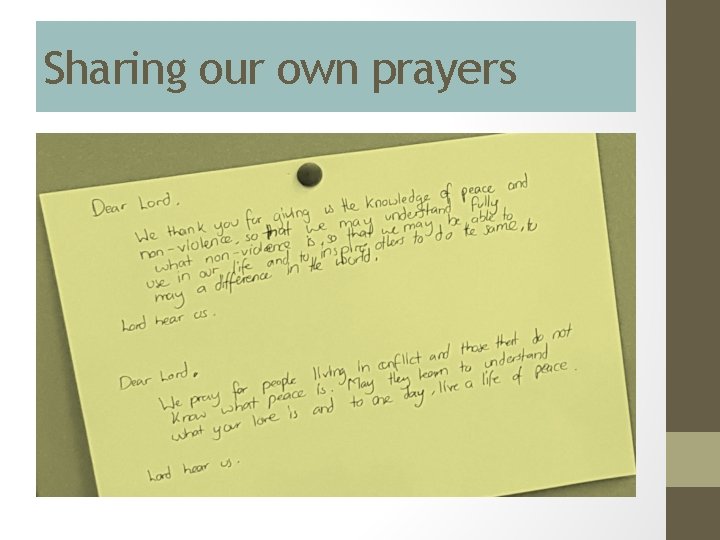 Sharing our own prayers
Dear Lord.
We thank you for giving us the knowledge of peace and
non-violence, so that we may understand fully
what non-violence is, so that we may be able to
use in our life and to inspire others to do the same, to
may a difference in the world.
Lord hear us.
Dear Lord.
We pray for people living in conflict and those that do not
know what peace is. May they learn to understand
what your love is and to one day, live a life of peace.
Lord hear us.